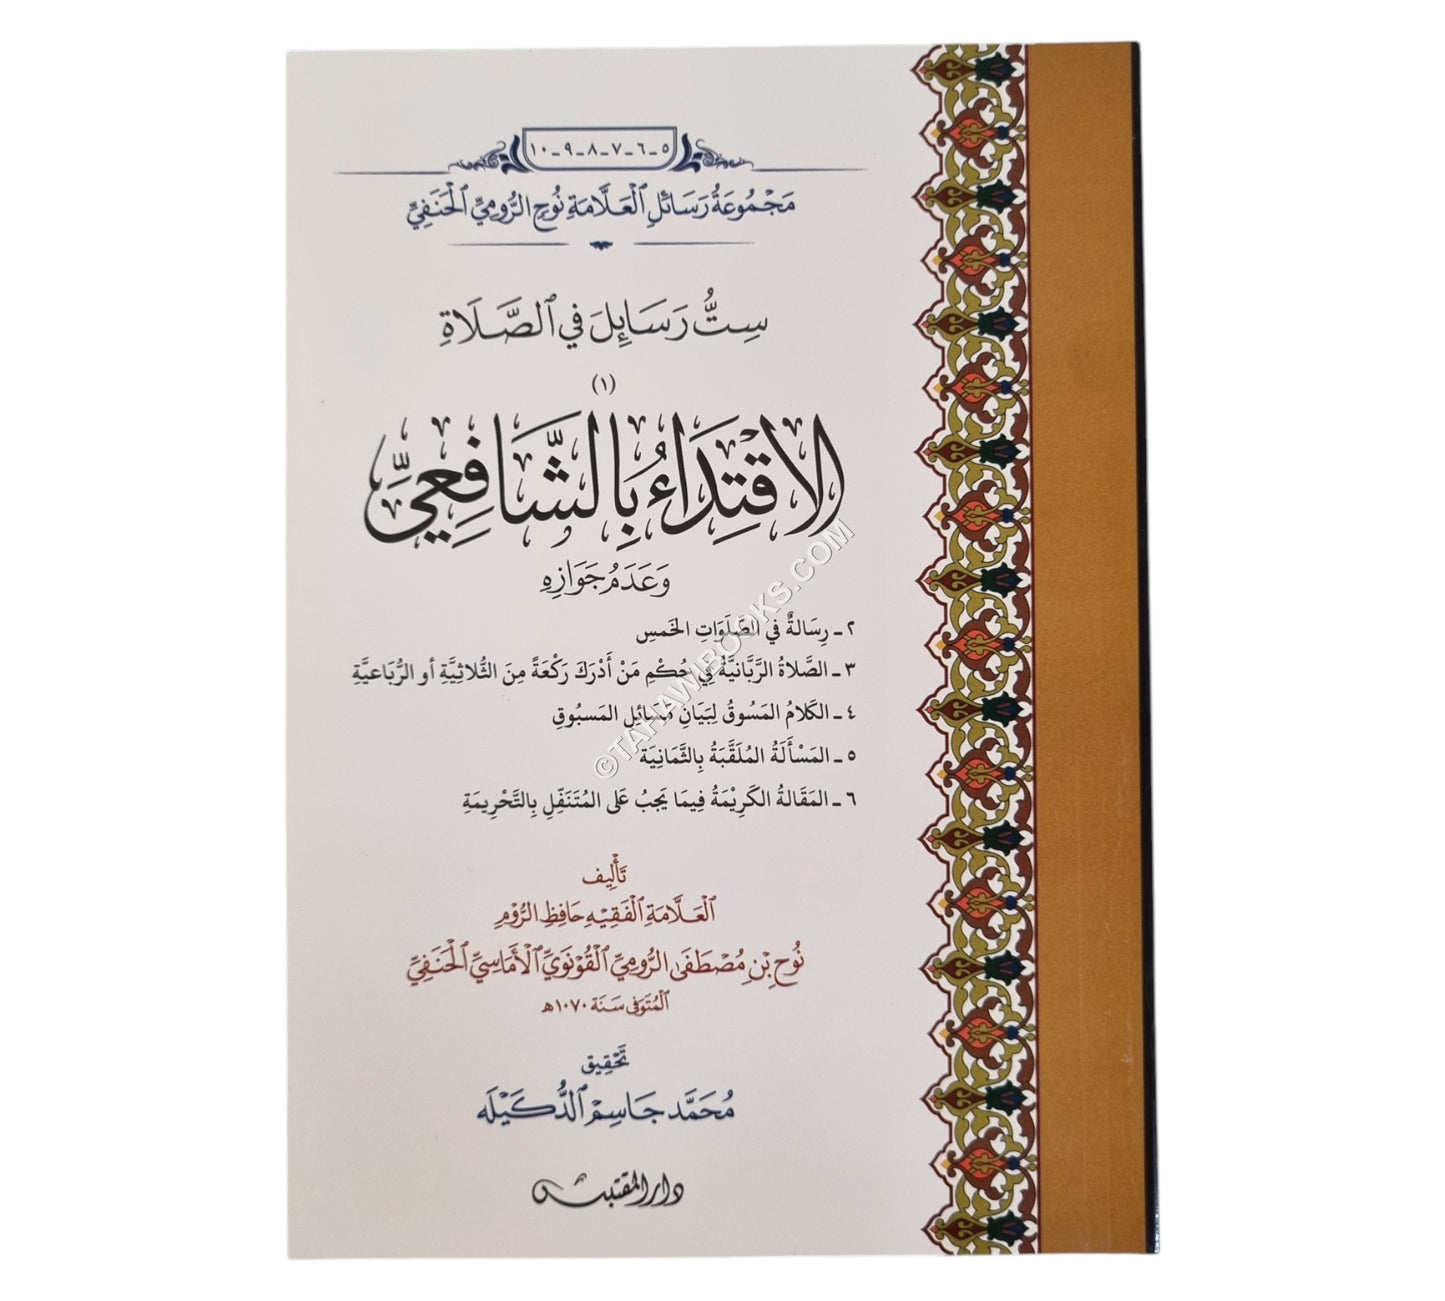 ٥-٦-٧-٨-٩-١٠
مَجْمُوعَةُ رَسَائِلِ ٱلْعَلَّامَةِ نُوحِ الرُّومِيِّ ٱلْحَنَفِيِّ
سِتُّ رَسَائِلَ فِي ٱلصَّلَاةِ
(١)
الِاقْتِدَاءُ بِالشَّافِعِيِّ
وَعَدَمُ جَوَازِهِ
٢ ـ رِسَالةٌ في الصَّلَوَاتِ الخَمسِ
٣ ـ الصَّلاةُ الرَّبَّانيَّةُ في حُكْمِ مَنْ أَدْرَكَ رَكْعَةً مِنَ الثُّلاثِيَّةِ أو الرُّبَاعيَّةِ
٤ ـ الكَلامُ المَسُوقُ لِبَيَانِ مَسَائِلِ المَسبُوقِ
٥ ـ المَسْأَلَةُ المُلَقَّبَةُ بِالثَّمَانِيَة
٦ ـ المَقَالةُ الكَرِيْمَةُ فِيمَا يَجبُ عَلى المُتَنَفِّلِ بِالتَّحْرِيمَةِ
تَأْلِيف
ٱلْعَلَّامَةِ ٱلْفَقِيْهِ حَافِظِ الرُّوْمِ
نُوحِ بْنِ مُصْطَفَى الرُّومِيِّ ٱلْقُوْنَوِيِّ ٱلْأَمَاسِيِّ ٱلْحَنَفِيِّ
ٱلْمُتَوَفَّى سَنَة ١٠٧٠هـ
تَحْقِيق
مُحَمَّد جَاسِمْ ٱلدُّكَيْلَه
دار المقتبس
©TAHAWIBOOKS.COM